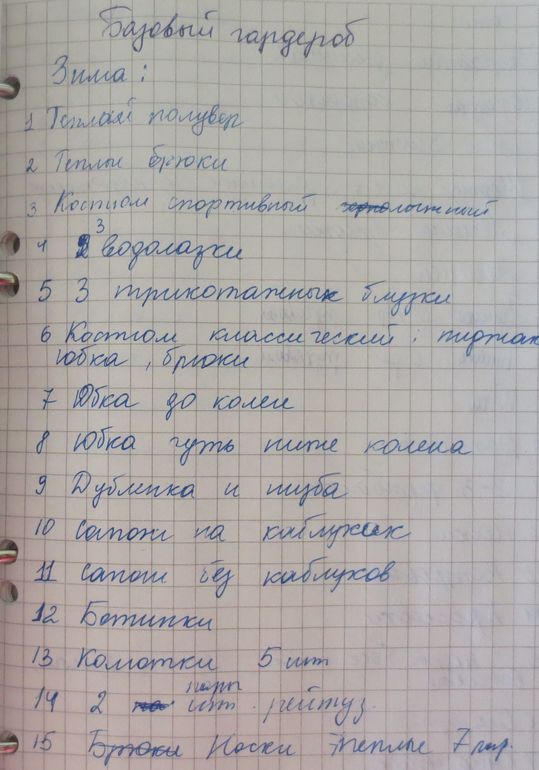 Базовый гардероб
Зима:
1 Теплый полувер
2 Теплые брюки
3 Костюм спортивный лыжный
4 3 водолазки
5 3 трикотажных блузки
6 Костюм классический: пиджак
юбка, брюки
7 Юбка до колен
8 Юбка чуть ниже колена
9 Дубленка и шуба
10 Сапоги на каблуках
11 Сапоги без каблуков
12 Ботинки
13 Колготки 5 шт
14 2 пары шт. рейтуз.
15 Брюки Носки теплые 7 пар.